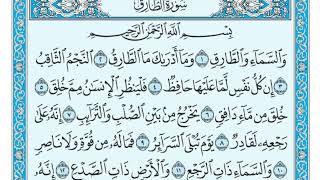 سُورَةُ الطَّارِقِ
بِسْمِ اللَّهِ الرَّحْمَٰنِ الرَّحِيمِ
وَالسَّمَاءِ وَالطَّارِقِ ١ وَمَا أَدْرَاكَ مَا الطَّارِقُ ٢ النَّجْمُ الثَّاقِبُ
٣ إِن كُلُّ نَفْسٍ لَّمَّا عَلَيْهَا حَافِظٌ ٤ فَلْيَنظُرِ الْإِنسَانُ مِمَّ خُلِقَ ٥
خُلِقَ مِن مَّاءٍ دَافِقٍ ٦ يَخْرُجُ مِن بَيْنِ الصُّلْبِ وَالتَّرَائِبِ ٧ إِنَّهُ عَلَىٰ
رَجْعِهِ لَقَادِرٌ ٨ يَوْمَ تُبْلَى السَّرَائِرُ ٩ فَمَا لَهُ مِن قُوَّةٍ وَلَا نَاصِرٍ
١٠ وَالسَّمَاءِ ذَاتِ الرَّجْعِ ١١ وَالْأَرْضِ ذَاتِ الصَّدْعِ ١٢ إِنَّهُ